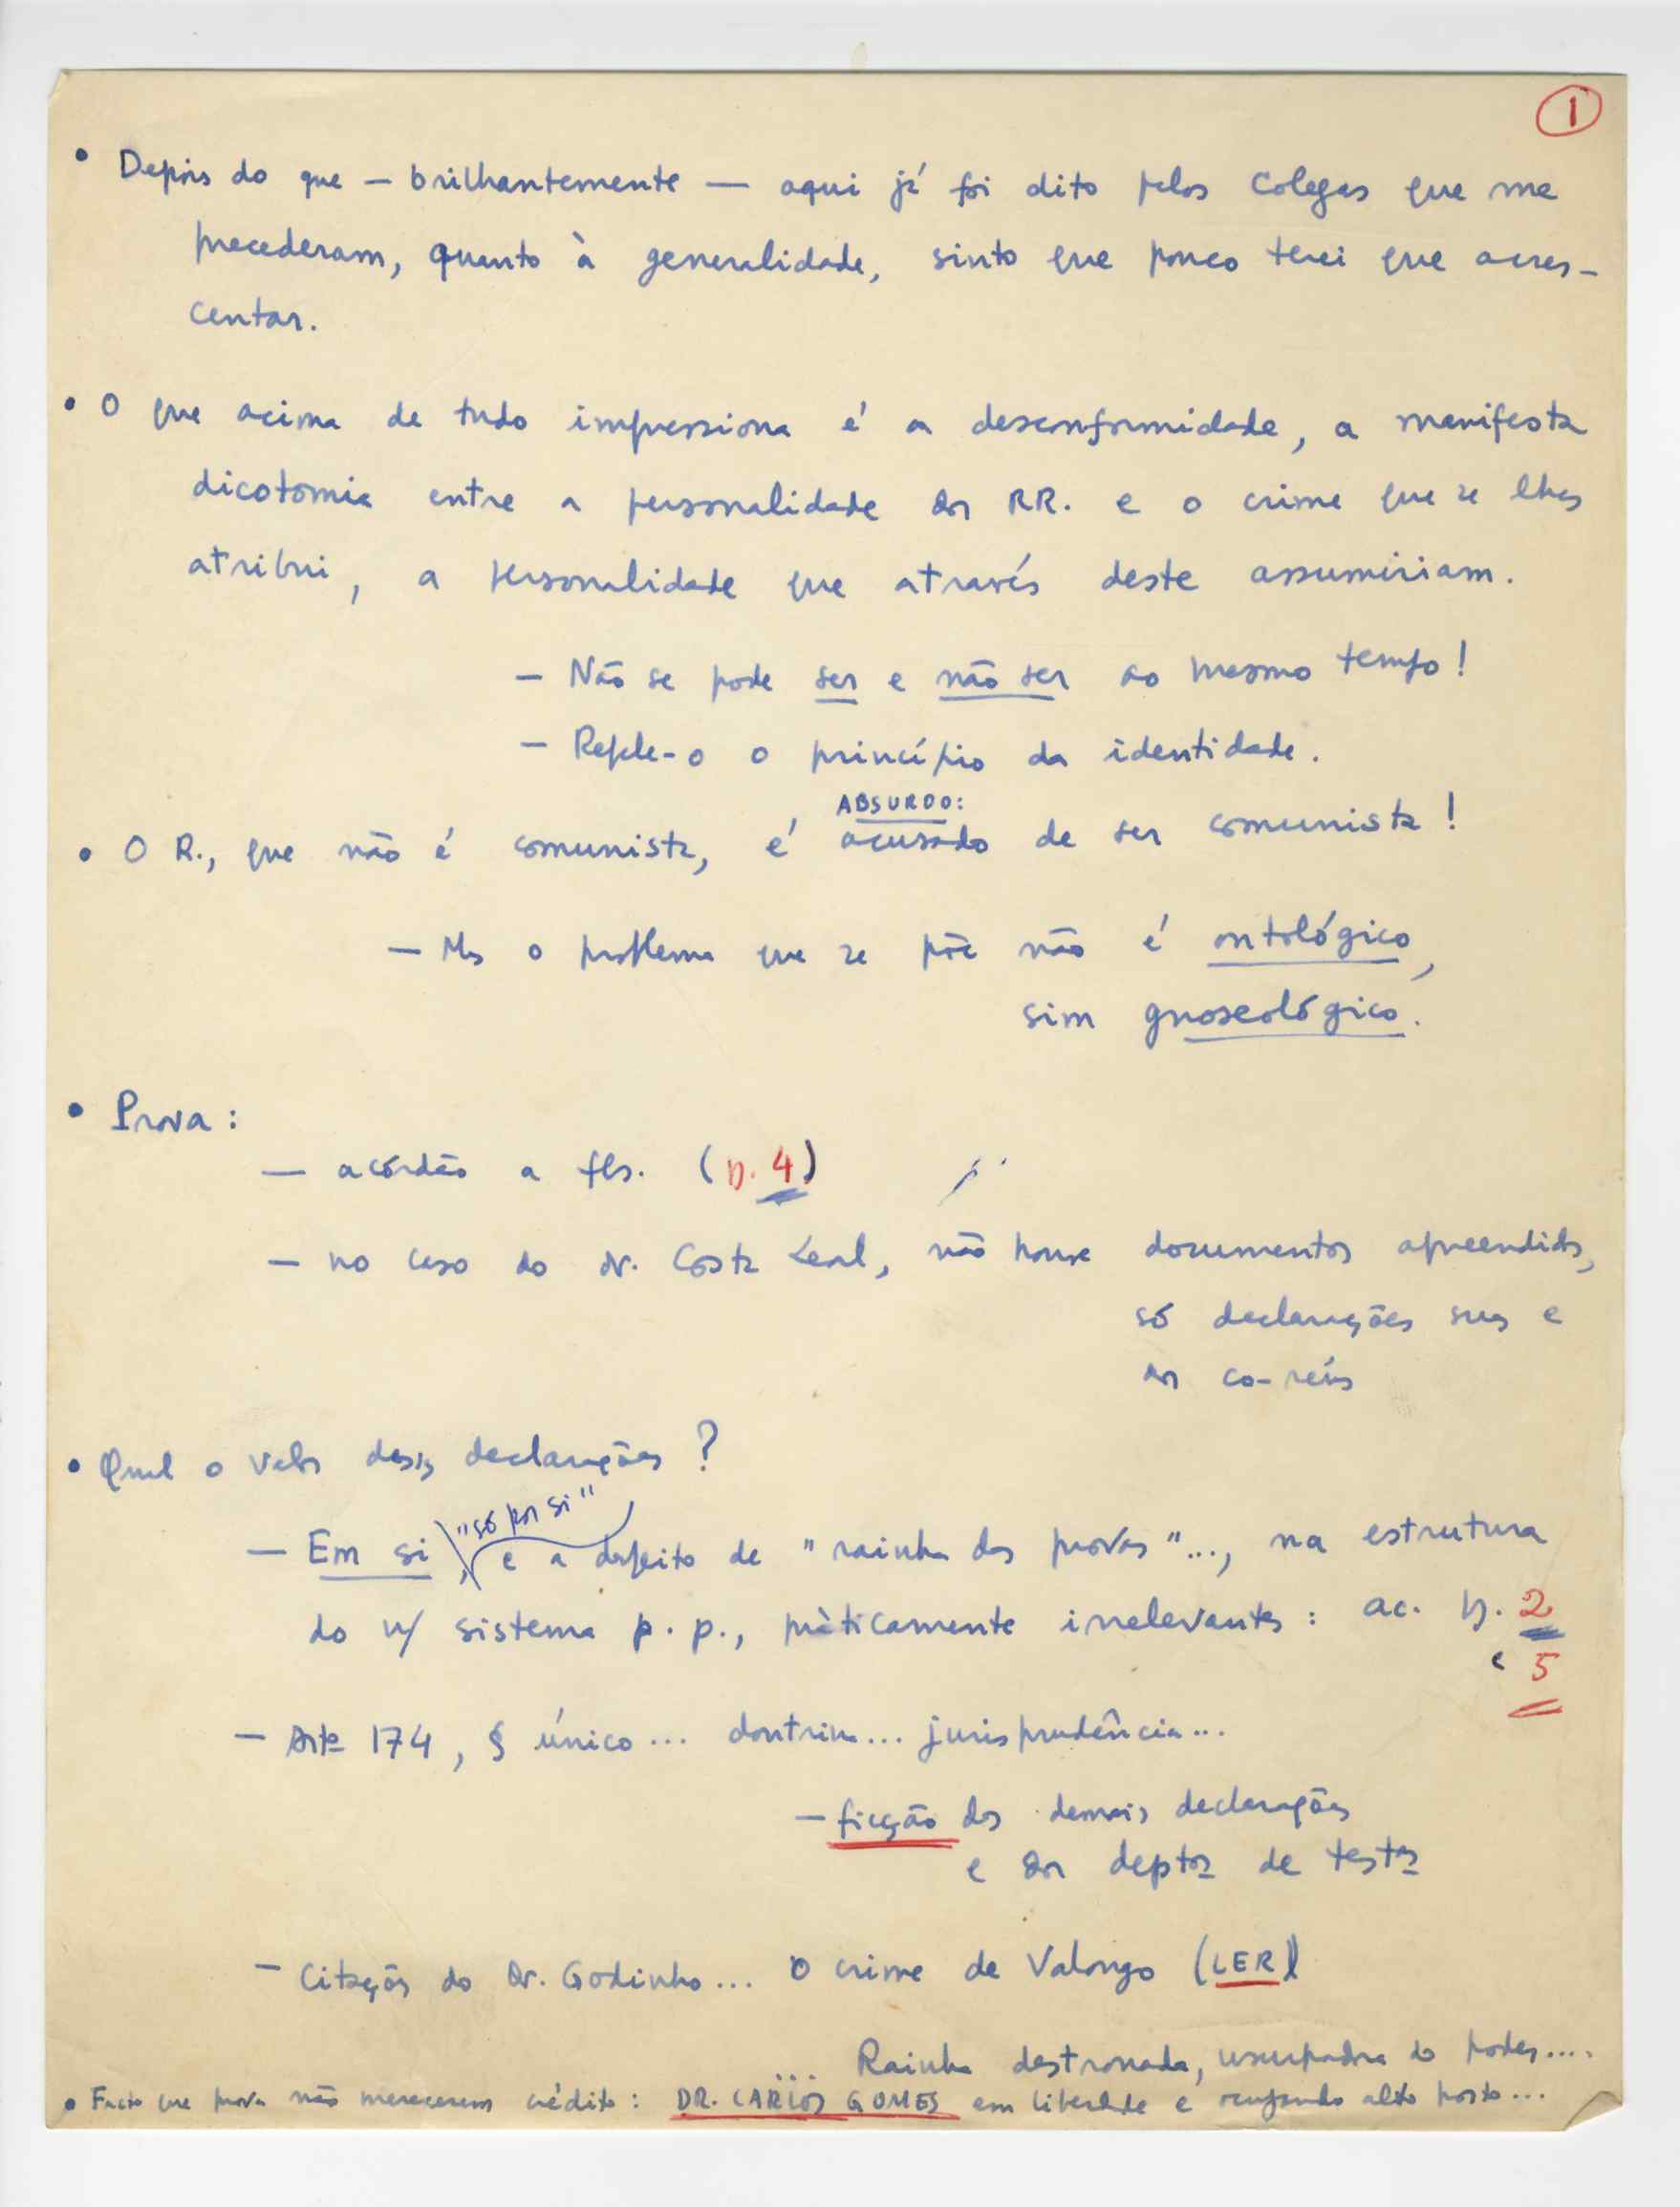 1
• Depois do que — brilhantemente — aqui já foi dito pelos Colegas que me
precederam, quanto à generalidade, sinto que pouco terei que acres-
centar.
• O que acima de tudo impressiona é a desconformidade, a manifesta
dicotomia entre a personalidade dos RR. e o crime que se lhes
atribui, a personalidade que através deste assumiriam.
— Não se pode ser e não ser ao mesmo tempo!
— Repele-o o princípio da identidade.
ABSURDO:
• O R., que não é comunista, é acusado de ser comunista!
— Mas o problema que se põe não é ontológico,
sim gnoseológico.
• Prova:
— acórdão a fls. (D. 4)
— no caso do dr. Costa Leal, não houve documentos apreendidos,
só declarações suas e
dos co-réus
• Qual o valor dessas declarações?
"só por si"
— Em si, e a despeito de "rainha das provas"..., na estrutura
do n/ sistema p. p., pràticamente irrelevantes: ac. D. 2
e 5
— Artº 174, § único... doutrina... jurisprudência...
— ficção das demais declarações
e dos deptos de testas
— Citações do Dr. Godinho... O crime de Valongo (LER)
Rainha destronada, usurpadora do poder....
• Facto que prova não merecerem crédito: DR. CARLOS GOMES em liberdade e ocupando alto posto...